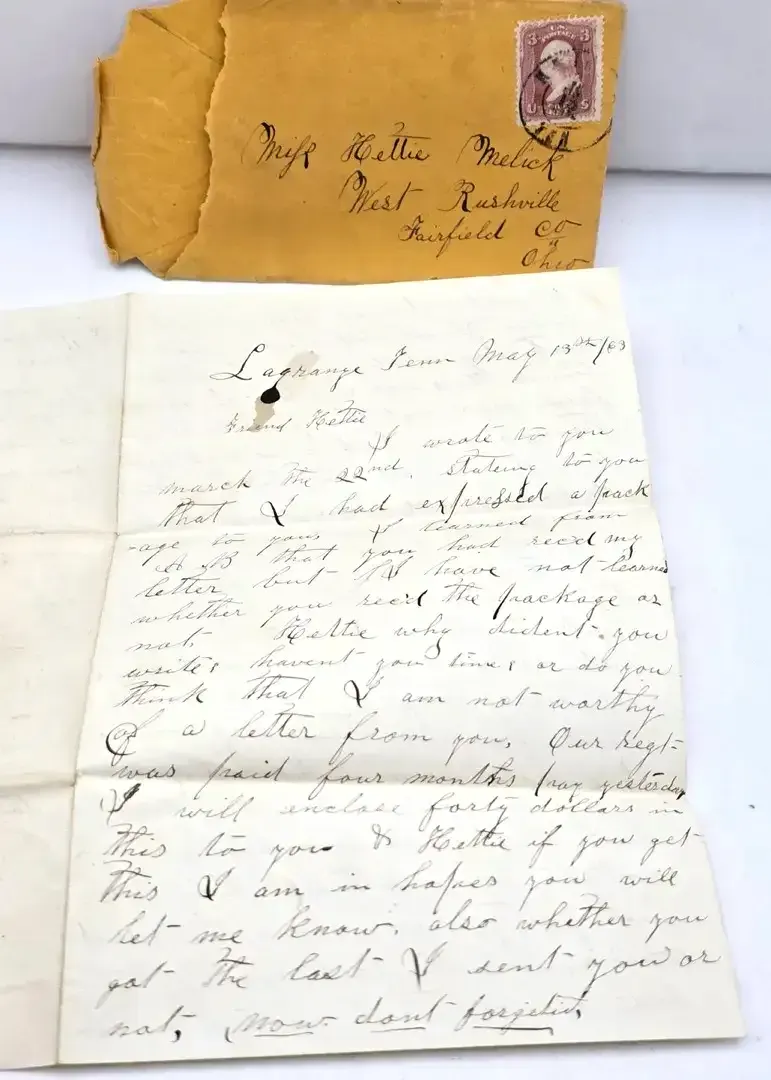 3 U.S. POSTAGE 3
Miss Hettie Melick
West Rushville
Fairfield Co
Ohio
Lagrange Tenn May 13th/63
Friend Hettie
I wrote to you
march the 22nd, stateing to you
that I had expressed a pack
-age to you I learned from
that you had recd my
letter but I have not learned
whether you rec'd the package or
not. Hettie why dident you
write, havent you time, or do you
think that I am not worthy
of a letter from you. Our regt-
was paid four months pay yesterday
I will enclose forty dollars in
this to you & Hettie if you get
this I am in hopes you will
let me know. also whether you
got the last I sent you or
not, now dont forgetit,